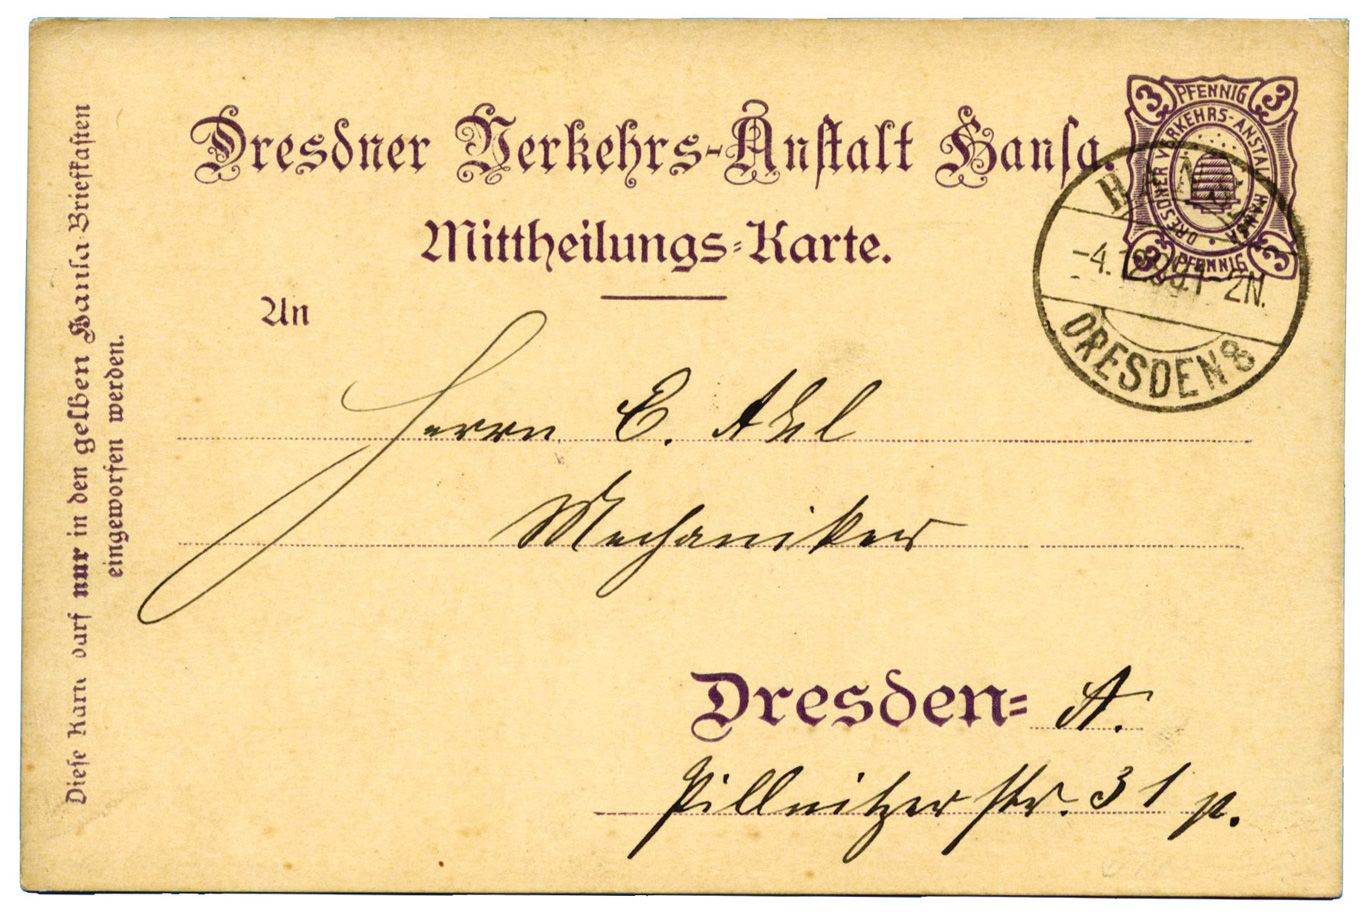 Dresdner Verkehrs-Anstalt Hansa.
Mittheilungs-Karte.
An
Herrn E. Akl
Mechaniker
Dresden- A.
Pillnitzer str. 31 p.
Diese Karte darf nur in den gelben Hansa-Briefkasten
eingeworfen werden.
3 PFENNIG 3
DRESDNER VERKEHRS-ANSTALT HANSA
3 PFENNIG 3
HANSA
2N.
DRESDEN 8